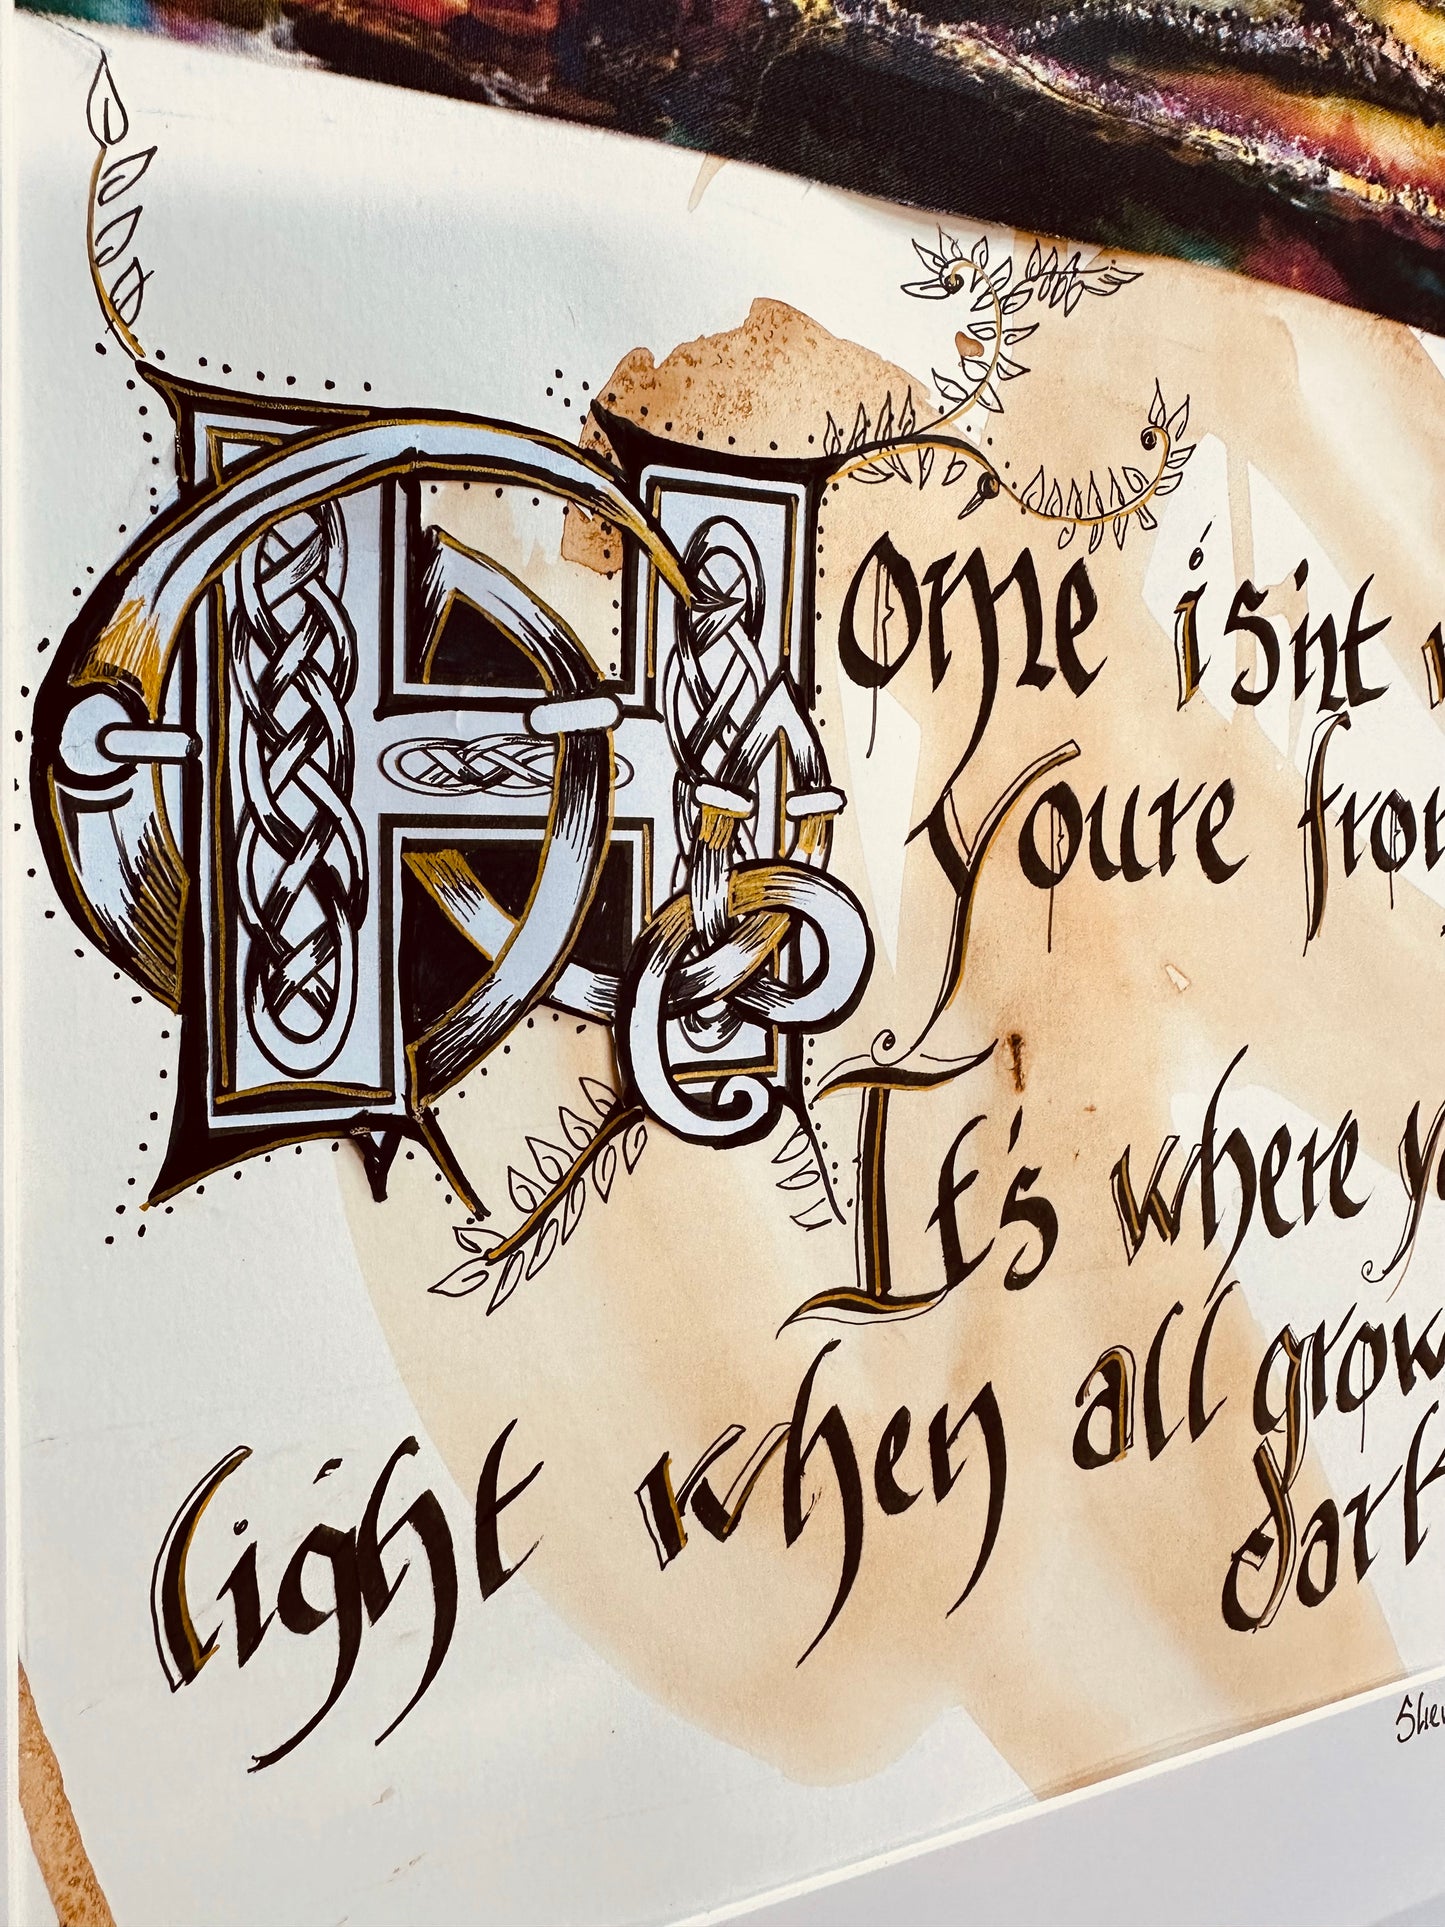 Home isn't
Youre from
It's where
light when all grow
dark